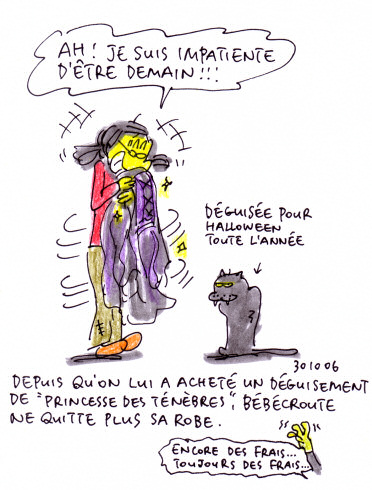 AH! JE SUIS IMPATIENTE
D'ÊTRE DEMAIN!!!
DÉGUISÉE POUR
HALLOWEEN
TOUTE L'ANNÉE
301006
DEPUIS QU'ON LUI A ACHETÉ UN DÉGUISEMENT
DE "PRINCESSE DES TÉNÈBRES", BÉBÉCROUTE
NE QUITTE PLUS SA ROBE.
ENCORE DES FRAIS...
TOUJOURS DES FRAIS...